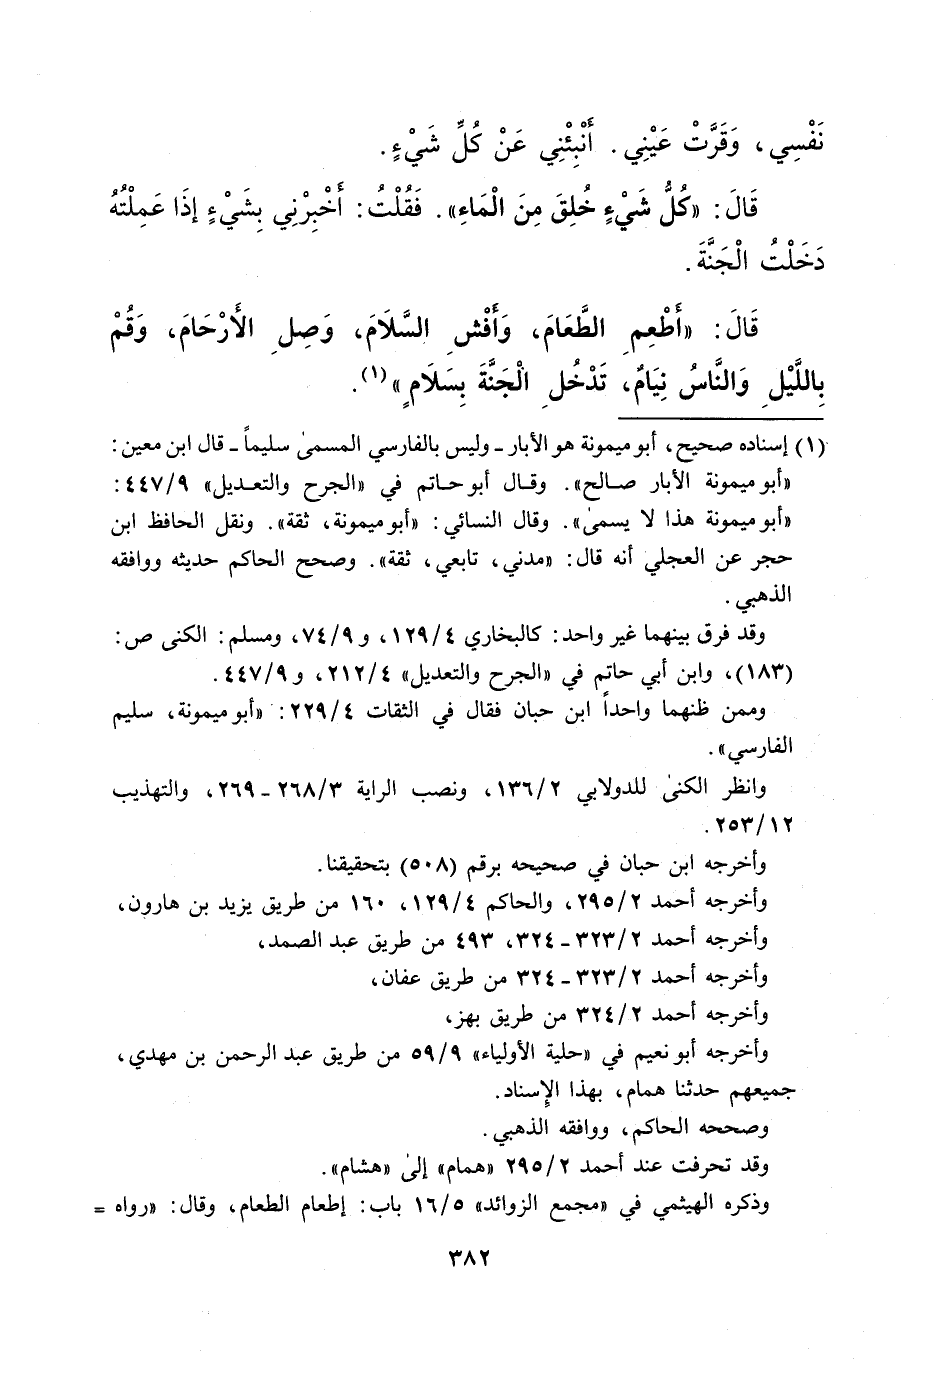 نَفْسِي، وَقَرَّتْ عَيْنِي. أَنْبِئْنِي عَنْ كُلِّ شَيْءٍ.
قَالَ: «كُلُّ شَيْءٍ خُلِقَ مِنَ الْمَاءِ». فَقُلْتُ: أَخْبِرْنِي بِشَيْءٍ إِذَا عَمِلْتُهُ
دَخَلْتُ الْجَنَّةَ.
قَالَ: «أَطْعِمِ الطَّعَامَ، وَأَفْشِ السَّلَامَ، وَصِلِ الأَرْحَامَ، وَقُمْ
بِاللَّيْلِ وَالنَّاسُ نِيَامٌ، تَدْخُلِ الْجَنَّةَ بِسَلَامٍ»(١).
(١) إسناده صحيح، أبو ميمونة هو الأبار ـ وليس بالفارسي المسمىٰ سليماً ـ قال ابن معين:
«أبو ميمونة الأبار صالح». وقال أبو حاتم في «الجرح والتعديل» ٤٤٧/٩:
«أبو ميمونة هذا لا يسمىٰ». وقال النسائي: «أبو ميمونة، ثقة». ونقل الحافظ ابن
حجر عن العجلي أنه قال: «مدني، تابعي، ثقة». وصحح الحاكم حديثه ووافقه
الذهبي.
وقد فرق بينهما غير واحد: كالبخاري ١٢٩/٤، و ٧٤/٩، ومسلم: الكنى ص:
(١٨٣)، وابن أبي حاتم في «الجرح والتعديل» ٢١٢/٤، و ٤٤٧/٩.
وممن ظنهما واحداً ابن حبان فقال في الثقات ٢٢٩/٤: «أبو ميمونة، سليم
الفارسي».
وانظر الكنىٰ للدولابي ١٣٦/٢، ونصب الراية ٢٦٨/٣ ـ ٢٦٩، والتهذيب
٢٥٣/١٢.
وأخرجه ابن حبان في صحيحه برقم (٥٠٨) بتحقيقنا.
وأخرجه أحمد ٢٩٥/٢، والحاكم ١٢٩/٤، ١٦٠ من طريق يزيد بن هارون،
وأخرجه أحمد ٣٢٣/٢ ـ ٣٢٤، ٤٩٣ من طريق عبد الصمد،
وأخرجه أحمد ٣٢٣/٢ ـ ٣٢٤ من طريق عفان،
وأخرجه أحمد ٣٢٤/٢ من طريق بهز،
وأخرجه أبو نعيم في «حلية الأولياء» ٥٩/٩ من طريق عبد الرحمن بن مهدي،
جميعهم حدثنا همام، بهذا الإسناد.
وصححه الحاكم، ووافقه الذهبي.
وقد تحرفت عند أحمد ٢٩٥/٢ «همام» إلىٰ «هشام».
وذكره الهيثمي في «مجمع الزوائد» ١٦/٥ باب: إطعام الطعام، وقال: «رواه =
٣٨٢